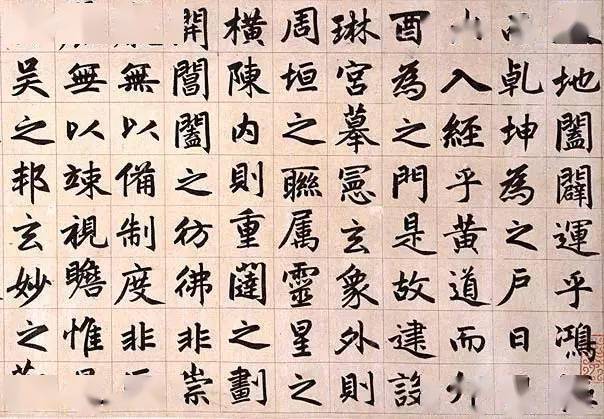 地闔闢運乎鴻
乹坤為之戶日
入經乎黃道而
酉為之門是故建設
琳宮摹憲玄象外則
周垣之聯属靈星之
橫陳內則重闥之劃
開閶闔之彷彿非崇
無以備制度非
無以竦視瞻惟
吳之邦玄妙之